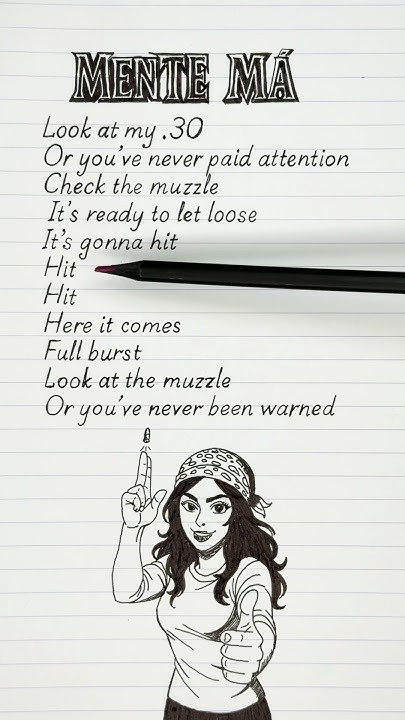 MENTE MÁ
Look at my .30
Or you've never paid attention
Check the muzzle
It's ready to let loose
It's gonna hit
Hit
Hit
Here it comes
Full burst
Look at the muzzle
Or you've never been warned